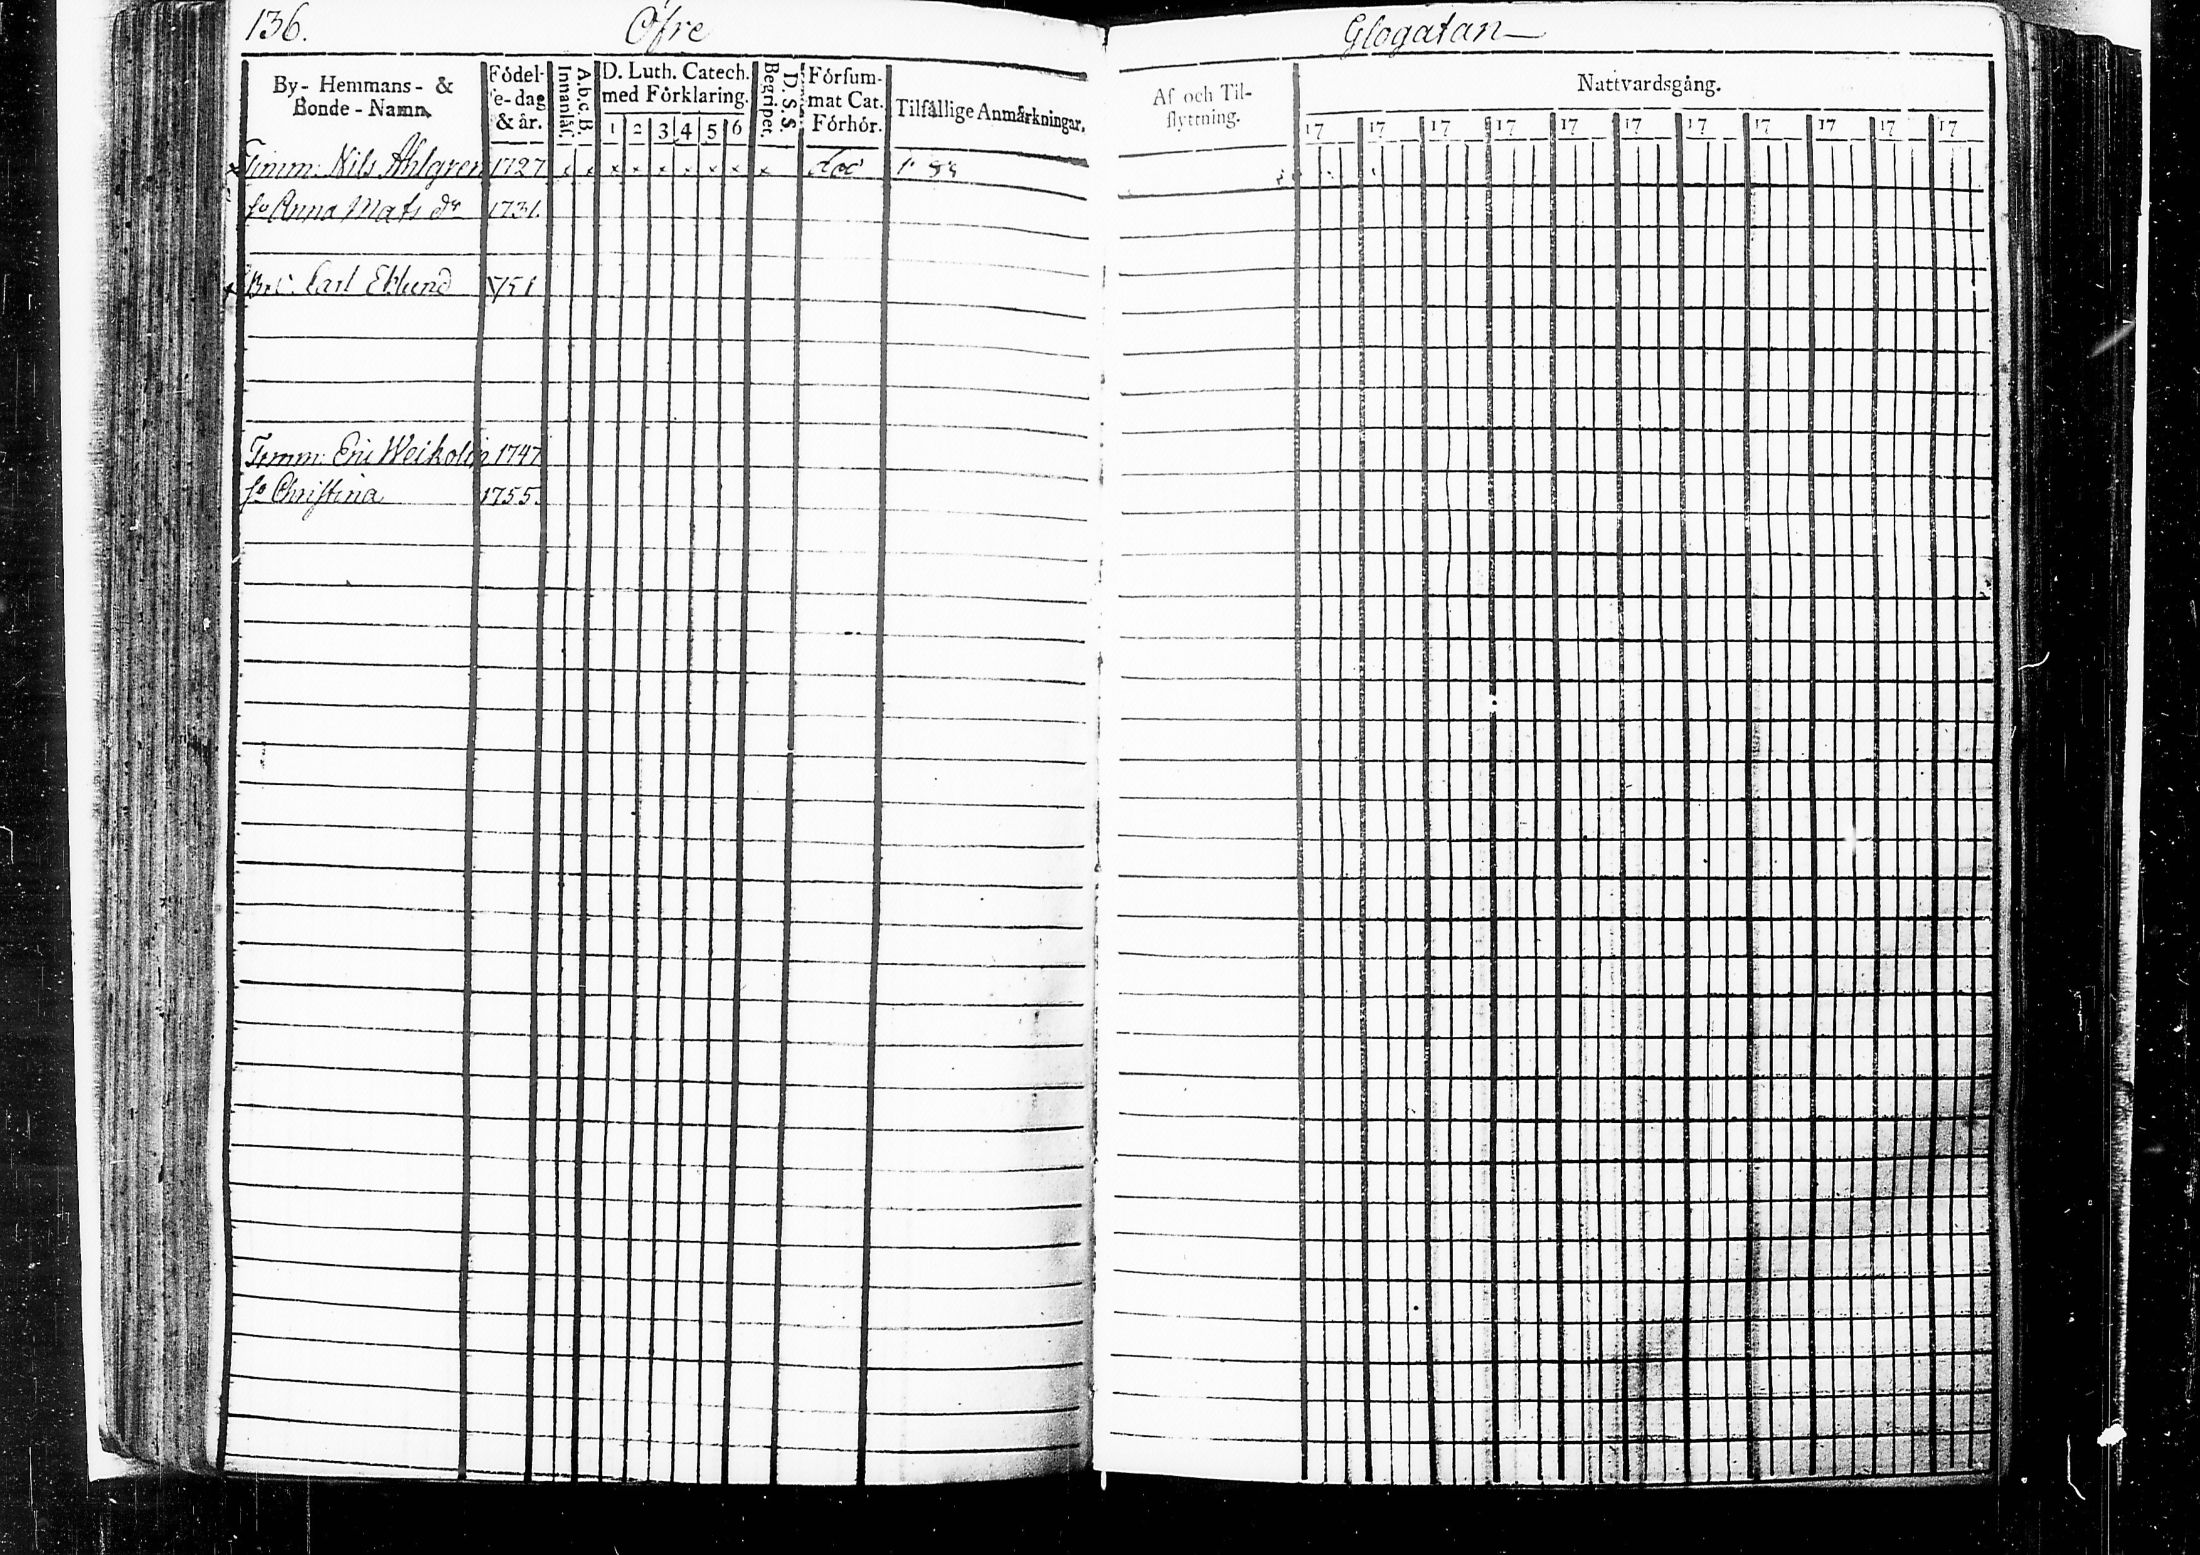 136. Öfre Glogatan
By- Hemmans- &
Bonde-Namn.
Födel-
se-dag
& år.
A.b.c.B.
Innanläs.
D. Luth. Catech.
med Förklaring.
1 2 3 4 5 6
D. S. S.
Begriper.
Försum-
mat Cat.
Förhör.
Tilfällige Anmärkningar.
Af och Til-
flyttning.
Nattvardsgång.
17 17 17 17 17 17 17 17 17 17 17
Timm: Nils Ahlgren 1727
Anna Mats dr 1731.
Carl Eklund 1751
Timm: Eric Weikolin 1747
Christina 1755.